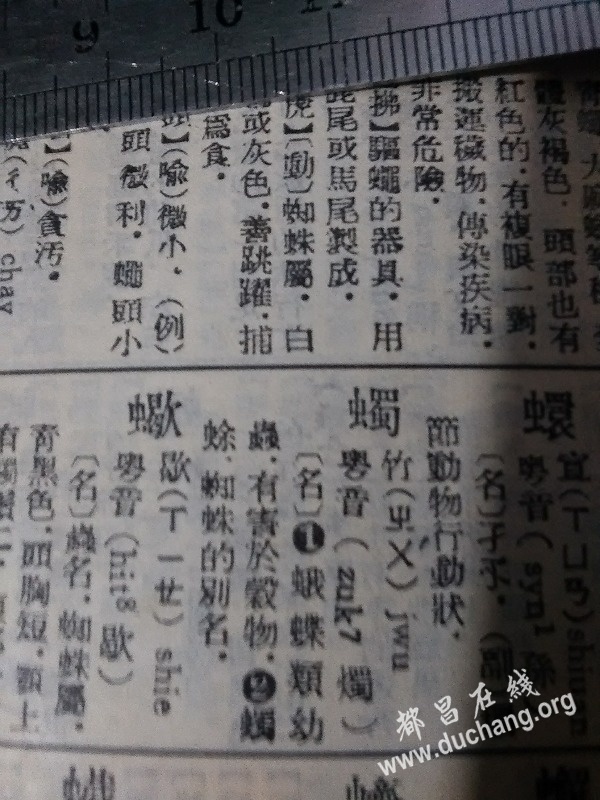 9 10 11
體灰褐色．頭部也有
紅色的．有複眼一對．
搬運穢物．傳染疾病．
非常危險．
拂】驅蠅的器具．用
尾或馬尾製成．
虎】〔動〕蜘蛛屬．白
或灰色．善跳躍．捕
爲食．
頭】(喻)微小．(例)
頭微利．蠅頭小
】(喻)貪汚．
(ㄔㄞ) chay
蠉 宣(ㄒㄩㄢ)shiuan
粵音(syn¹孫
〔名〕孑孓．(副)
節動物行動狀．
蠋 竹(ㄓㄨ) jwu
粵音(zuk7 燭)
〔名〕❶蛾蝶類幼
蟲．有害於穀物．❷蠋
蜍．蜘蛛的別名．
蠍 歇(ㄒㄧㄝ) shie
粵音(hit⁸歇)
〔名〕蟲名．蜘蛛屬．
青黑色．頭胸短．顎上
都昌在线
www.duchang.org